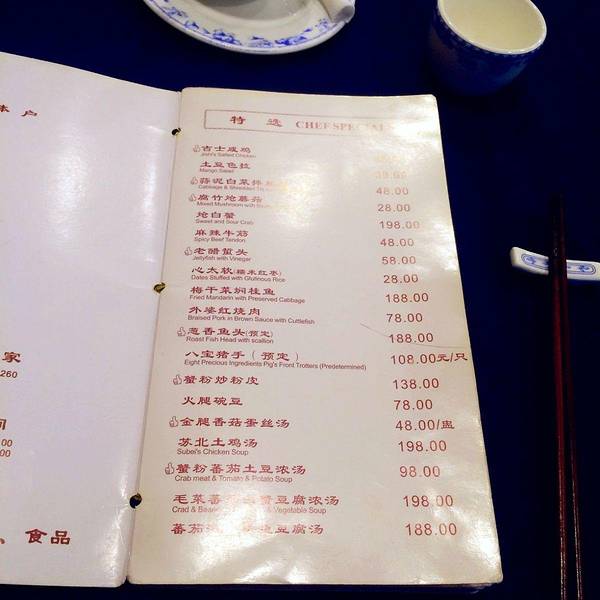 特 选 CHEF SPECIAL
吉士咸鸡
Joshi's Salted Chicken
土豆色拉
Mango Salad
38.00
蒜泥白菜拌
Cabbage & Shredded
48.00
腐竹炝蘑菇
Mixed Mushroom with
28.00
炝白蟹
Sweet and Sour Crab
198.00
麻辣牛筋
Spicy Beef Tendon
48.00
老醋蜇头
Jellyfish with Vinegar
58.00
心太软(糯米红枣)
Dates Stuffed with Glutinous Rice
28.00
梅干菜焖桂鱼
Fried Mandarin with Preserved Cabbage
188.00
外婆红烧肉
Braised Pork in Brown Sauce with Cuttlefish
78.00
葱香鱼头(预定)
Roast Fish Head with scallion
188.00
八宝猪手(预定)
Eight Precious Ingredients Pig's Front Trotters (Predetermined)
108.00元/只
蟹粉炒粉皮
138.00
火腿碗豆
78.00
金腿香菇蛋丝汤
48.00/盅
苏北土鸡汤
Subei's Chicken Soup
198.00
蟹粉蕃茄土豆浓汤
Crab meat & Tomato & Potato Soup
98.00
毛菜蕃 蟹豆腐浓汤
Crad & Bean & Vegetable Soup
198.00
蕃茄 豆腐汤
188.00
体 户
家
260
司
.00
.00
、食品